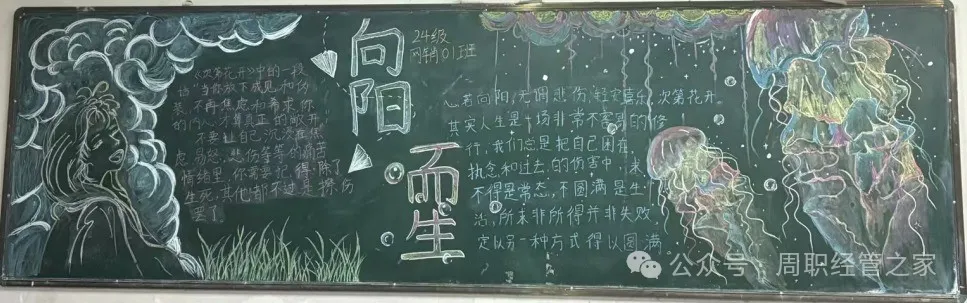 《次第花开》中的一段
话"当你放下成见和伪
装,不再焦虑和希求,你
的内心才算真正的敞开,
不要让自己沉浸在焦
虑、易怒、悲伤等等的痛苦
情绪里,你需要记得,除了
生死,其他都不过是擦伤
罢了
向阳
而生
24级
网销01班
心若向阳,无谓悲伤,结实喜乐,次第花开
其实人生是一场非常不容易的修
行,我们总是把自己困在
执念和过去的伤害中,求
不得是常态,不圆满是生
活,所求非所得并非失败
定以另一种方式得以圆满
公众号·周职经管之家